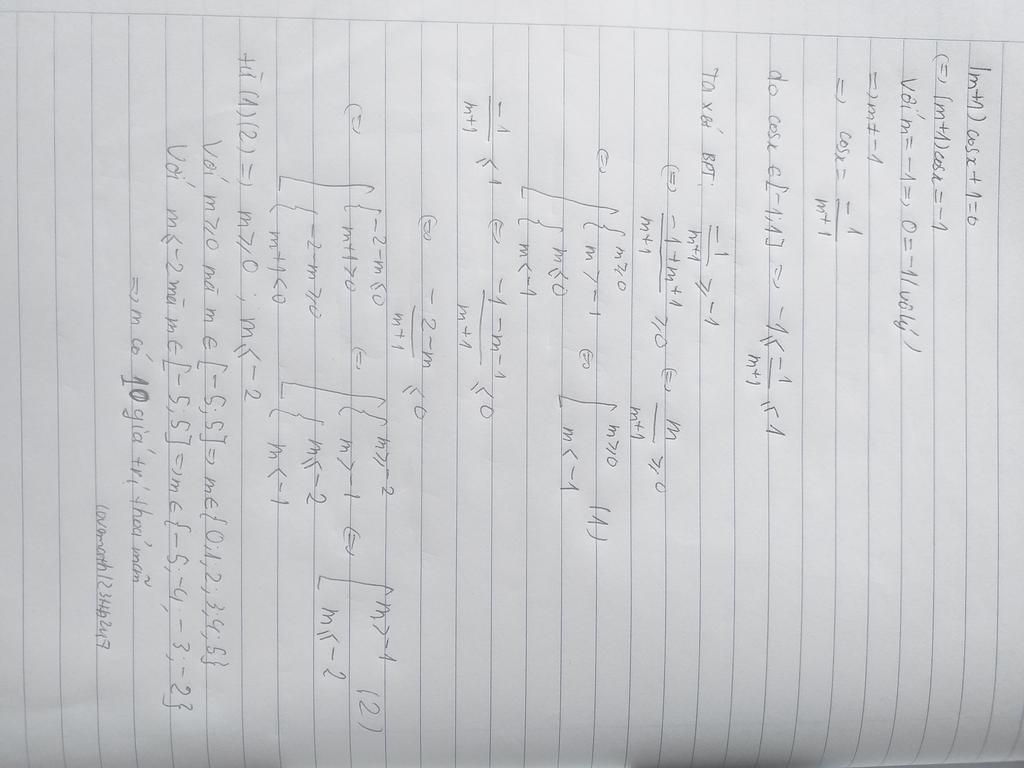 (m+1) cosx + 1 = 0
(=) (m+1) cosx = -1
Với m = -1 => 0 = -1 (vô lý)
=> m ≠ -1
=> cosx = -1/(m+1)
do cosx ∈ [-1;1] => -1 ≤ -1/(m+1) ≤ 1
Ta xét BPT: -1/(m+1) ≥ -1
(=) (-1+m+1)/(m+1) ≥ 0 (=) m/(m+1) ≥ 0
(=) [ { m ≥ 0 ; m > -1 ; { m ≤ 0 ; m < -1 (=) [ m ≥ 0 ; m < -1 (1)
-1/(m+1) ≤ 1 (=) (-1-m-1)/(m+1) ≤ 0
(=) (-2-m)/(m+1) ≤ 0
(=) [ { -2-m ≤ 0 ; m+1 > 0 ; { -2-m ≥ 0 ; m+1 < 0 (=) [ { m ≥ -2 ; m > -1 ; { m ≤ -2 ; m < -1 (=) [ m > -1 ; m ≤ -2 (2)
từ (1) (2) => m ≥ 0 ; m ≤ -2
Với m ≥ 0 mà m ∈ [-5;5] => m ∈ {0;1;2;3;4;5}
Với m ≤ -2 mà m ∈ [-5;5] => m ∈ {-5;-4;-3;-2}
=> m có 10 giá trị thoả mãn